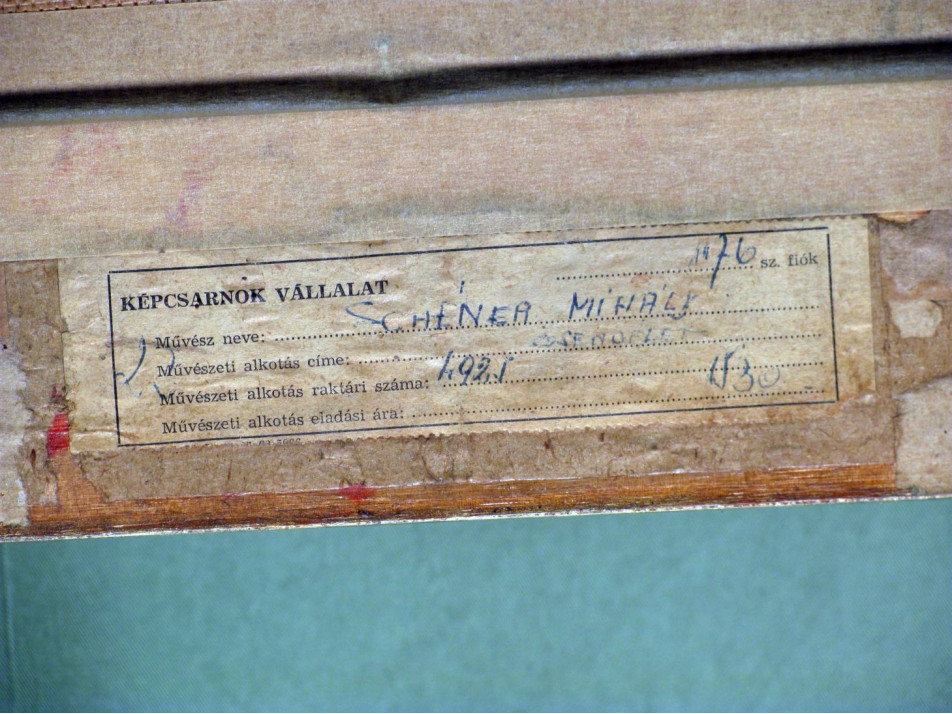 1476 sz. fiók
KÉPCSARNOK VÁLLALAT
Művész neve: SCHÉNER MIHÁLY
Művészeti alkotás címe: CSENDÉLET
Művészeti alkotás raktári száma: 4921
Művészeti alkotás eladási ára: